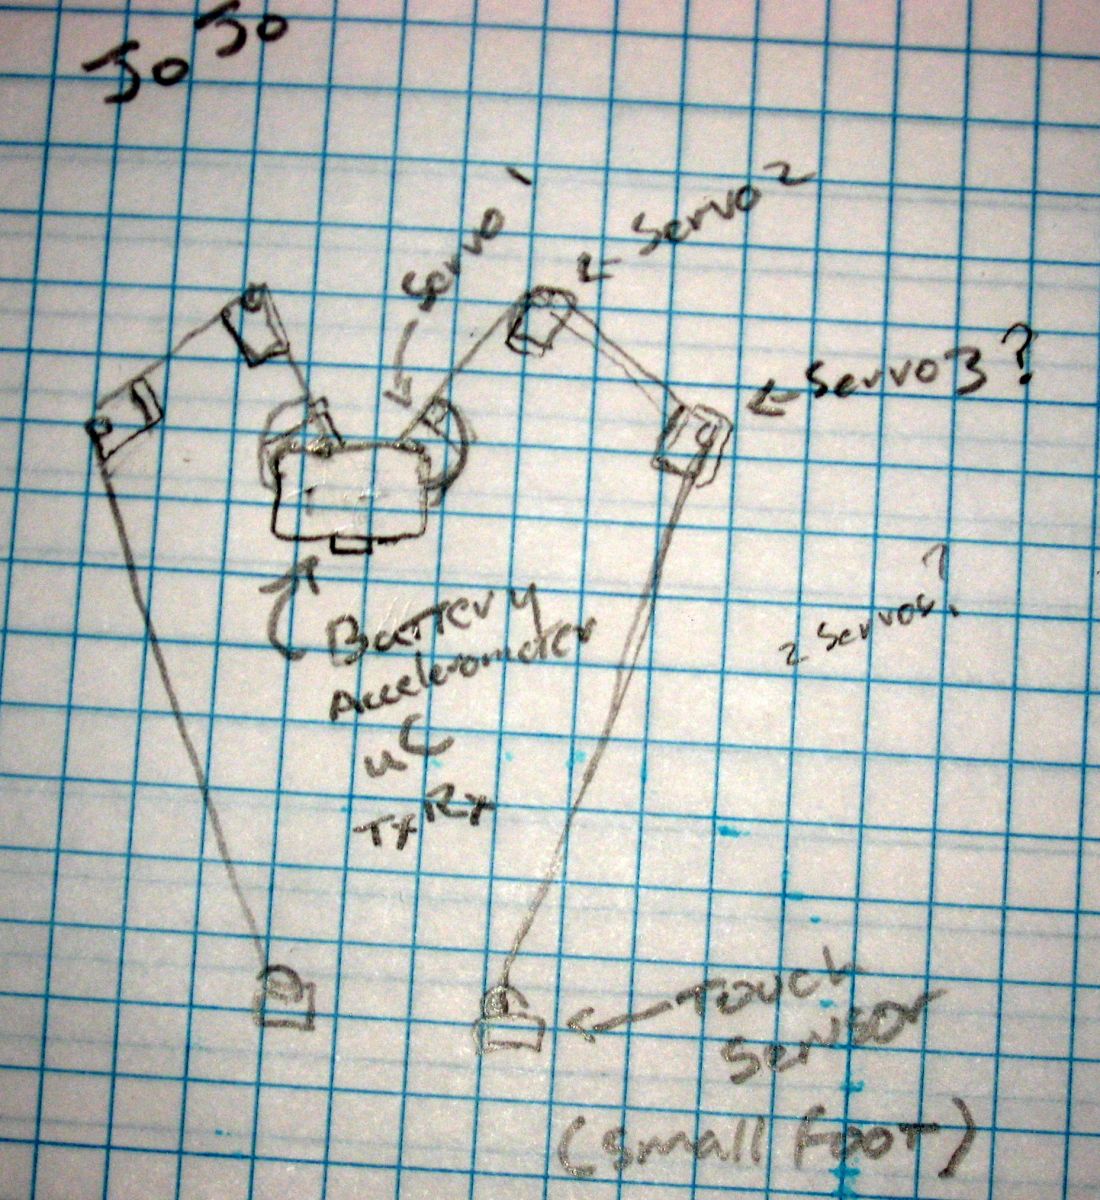 JoJo
servo 1
Servo 2
Servo 3?
Battery
Accelerometer
uC
TxRx
2 Servos?
Touch
Sensor
(small foot)